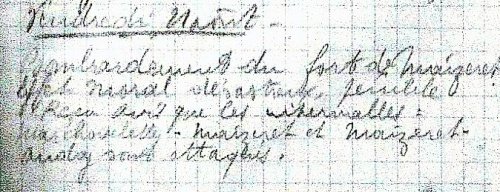 Vendredi 21 août -
Bombardement du fort de Maizeret
Effet moral désastreux, pénible
Reçu avis que les intervalles :
Marchovelette - Maizeret et Maizeret -
Andoy sont attaqués.